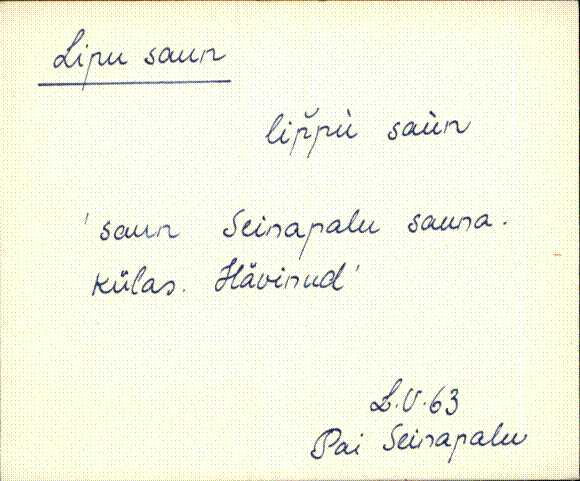 Lipu saun
lip̌pù saùn
'saun Seinapalu sauna.
külas. Hävinud'
L.V.63
Pai Seinapalu